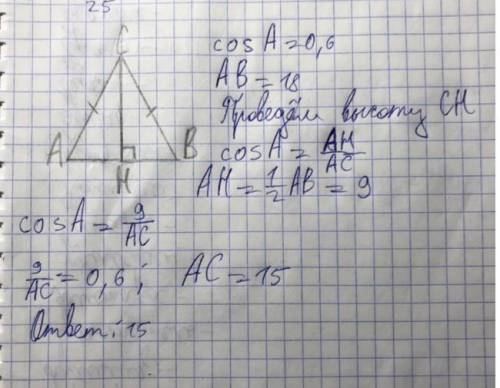 25
C
cosA = 0,6
AB = 18
Проведём высоту CH
A
B
H
cosA = AH/AC
AH = 1/2 AB = 9
cosA = 9/AC
9/AC = 0,6; AC = 15
Ответ: 15